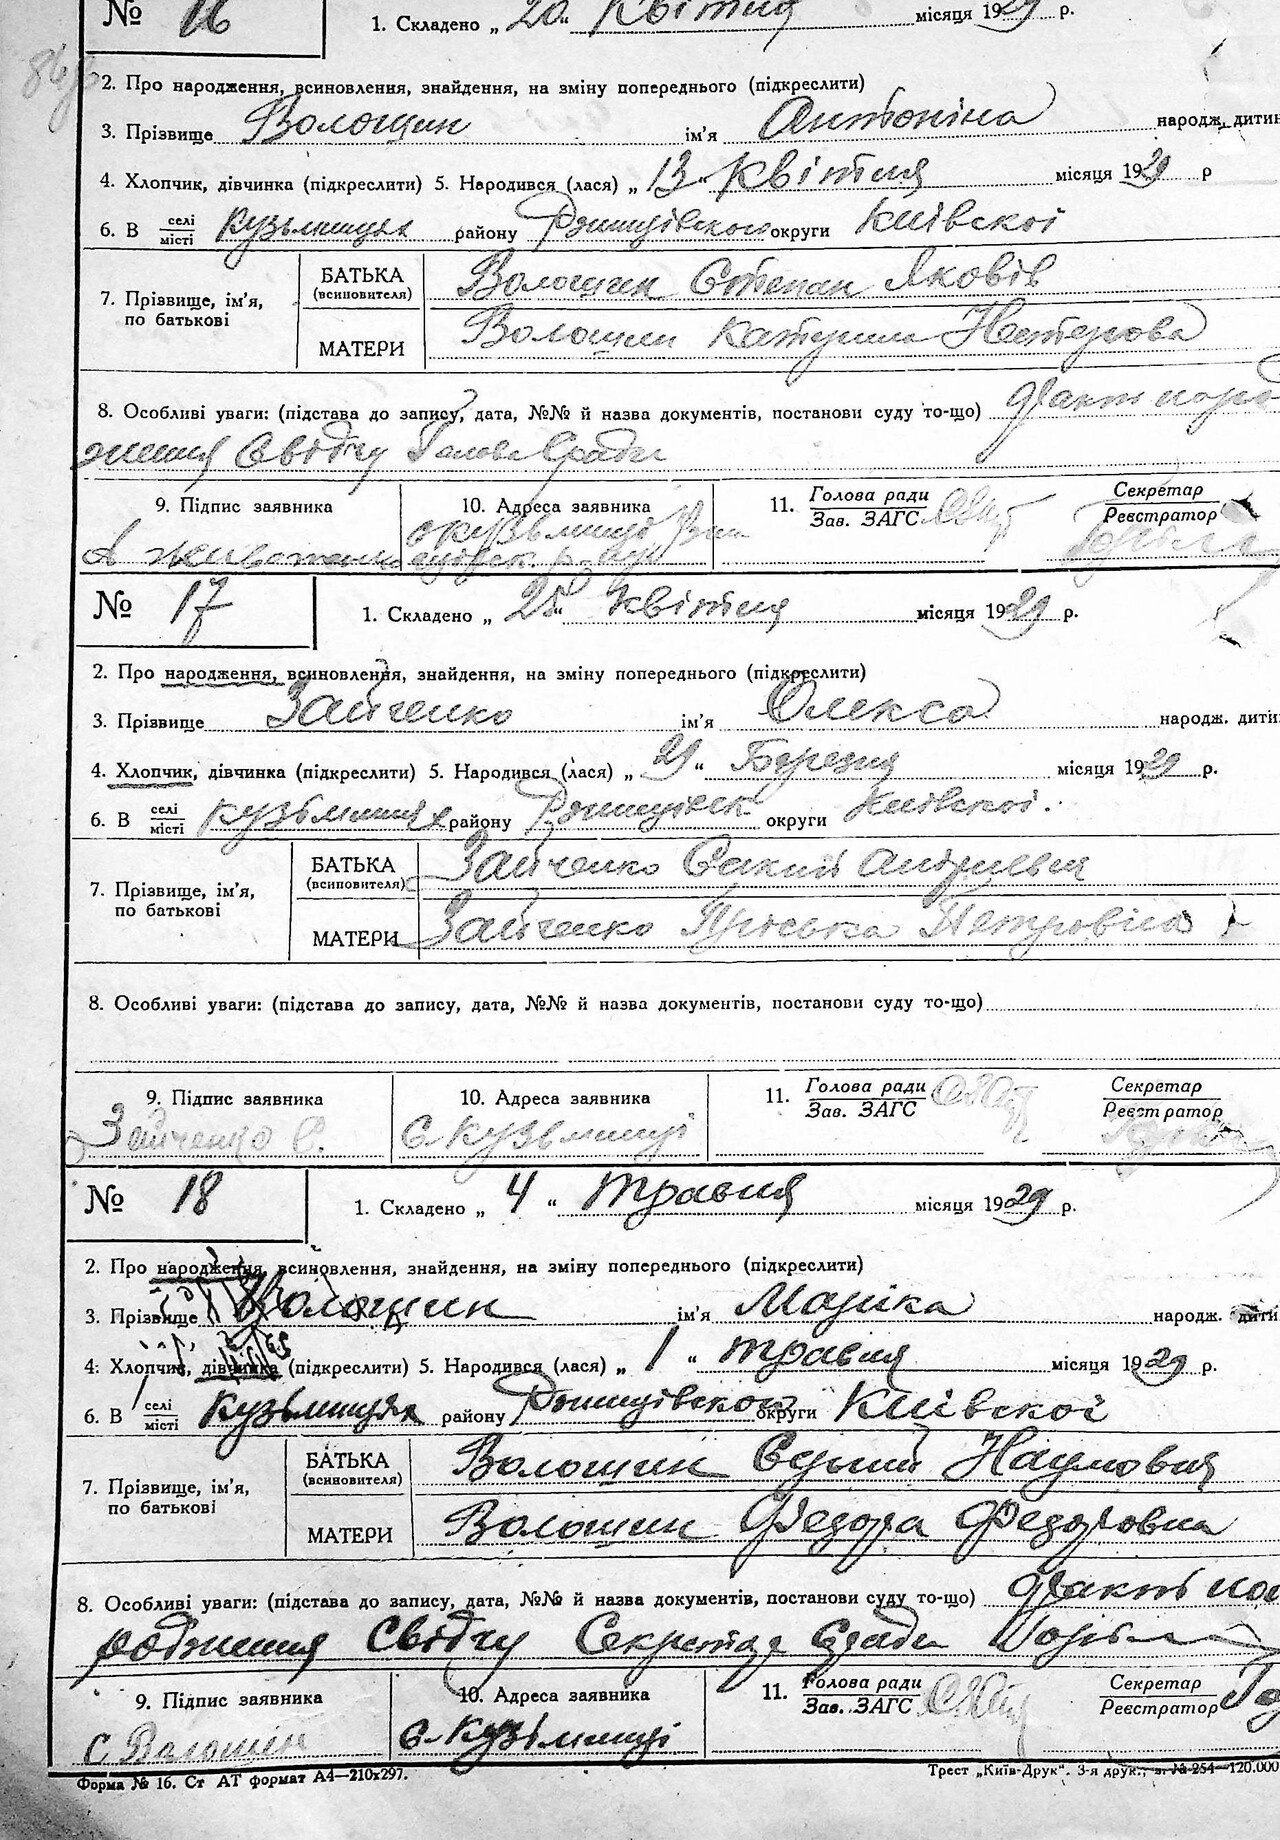 № 16 1. Складено „ 20 “ Квітня місяця 1929 р.
2. Про народження, всиновлення, знайдення, на зміну попереднього (підкреслити)
3. Прізвище Волощин ім'я Антоніна народж. дитин
4. Хлопчик, дівчинка (підкреслити) 5. Народився (лася) „ 13 “ Квітня місяця 1929 р
6. В селі місті Кузьминцях району Ржищівського округи Київскої
7. Прізвище, ім'я, по батькові
БАТЬКА (всиновителя) Волощин Степан Яковів
МАТЕРИ Волощин Катерина Нестерова
8. Особливі уваги: (підстава до запису, дата, №№ й назва документів, постанови суду то-що) Факт наро
ження Свідчу Голова Сради
9. Підпис заявника 10. Адреса заявника 11. Голова ради Зав. ЗАГС Секретар Реєстратор
с Кузьминці
№ 17 1. Складено „ 25 “ квітня місяця 1929 р.
2. Про народження, всиновлення, знайдення, на зміну попереднього (підкреслити)
3. Прізвище Зайченко ім'я Олекса народж. дитин
4. Хлопчик, дівчинка (підкреслити) 5. Народився (лася) „ 29 “ Березня місяця 1929 р.
6. В селі місті Кузьминцях району Ржищівськ округи Київскої.
7. Прізвище, ім'я, по батькові
БАТЬКА (всиновителя) Зайченко Сакій Андрієвич
МАТЕРИ Зайченко Пріська Петровна
8. Особливі уваги: (підстава до запису, дата, №№ й назва документів, постанови суду то-що)
9. Підпис заявника 10. Адреса заявника 11. Голова ради Зав. ЗАГС Секретар Реєстратор
Зайченко С. с Кузьминці
№ 18 1. Складено „ 4 “ травня місяця 1929 р.
2. Про народження, всиновлення, знайдення, на зміну попереднього (підкреслити)
3. Прізвище Волощин ім'я Марійка народж. дити
4. Хлопчик, дівчинка (підкреслити) 5. Народився (лася) „ 1 “ травня місяця 1929 р.
6. В селі місті Кузьминцях району Ржищівського округи Київскої
7. Прізвище, ім'я, по батькові
БАТЬКА (всиновителя) Волощин Наумович
МАТЕРИ Волощин Федора Федоровна
8. Особливі уваги: (підстава до запису, дата, №№ й назва документів, постанови суду то-що) Факт на
родження Свідчу Секретар Сради
9. Підпис заявника 10. Адреса заявника 11. Голова ради Зав. ЗАГС Секретар Реєстратор
С Волошин с Кузьминці
Форма № 16. Ст АТ формат А4—210х297. Трест „Київ-Друк“. 3-я друк., з. № 254—120.000